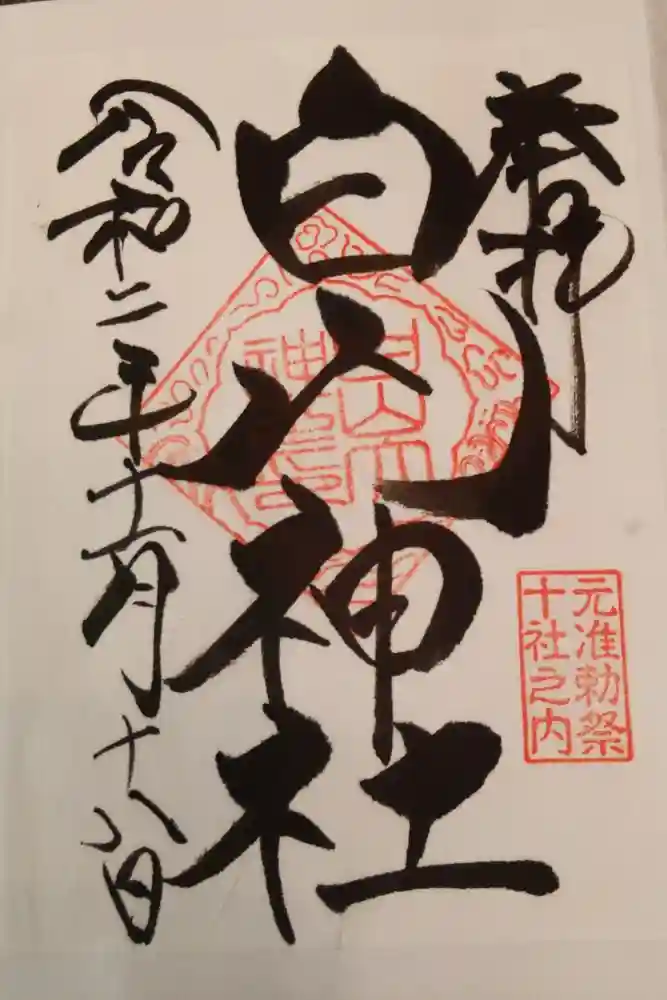 奉拝
元准勅祭
十社之内
白山神社
令和二年十一月十八日